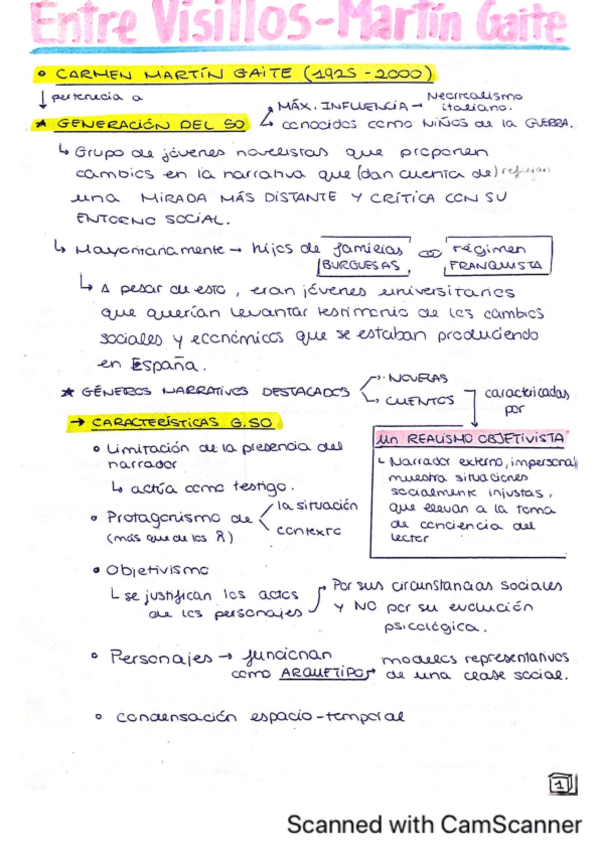 Entre Visillos-Martín Gaite
• CARMEN MARTÍN GAITE (1925-2000)
↓ pertenecía a
★ GENERACIÓN DEL 50
MÁX. INFLUENCIA → Neorrealismo italiano.
conocidos como NIÑOS de la GUERRA.
↳ Grupo de jóvenes novelistas que proponen
cambios en la narrativa que (dan cuenta de) reflejan
una MIRADA MÁS DISTANTE Y CRÍTICA CON SU
ENTORNO SOCIAL.
↳ Mayoritariamente → hijos de familias BURGUESAS
régimen FRANQUISTA
↳ A pesar de esto, eran jóvenes universitarios
que querían levantar testimonio de los cambios
sociales y económicos que se estaban produciendo
en España.
★ GÉNEROS NARRATIVOS DESTACADOS
→ NOVELAS
→ CUENTOS
caracterizadas por
→ CARACTERÍSTICAS G.50
un REALISMO OBJETIVISTA
└ Narrador externo, impersonal
muestra situaciones
socialmente injustas,
que llevan a la toma
de conciencia del
lector
• Limitación de la presencia del
narrador
↳ actúa como testigo.
• Protagonismo de
(más que de los
la situación
contexto
• Objetivismo
└ se justifican los actos
de los personajes
Por sus circunstancias sociales
y NO por su evolución
psicológica.
• Personajes → funcionan
como ARQUETIPOS →
modelos representativos
de una clase social.
• Condensación espacio-temporal
1
Scanned with CamScanner